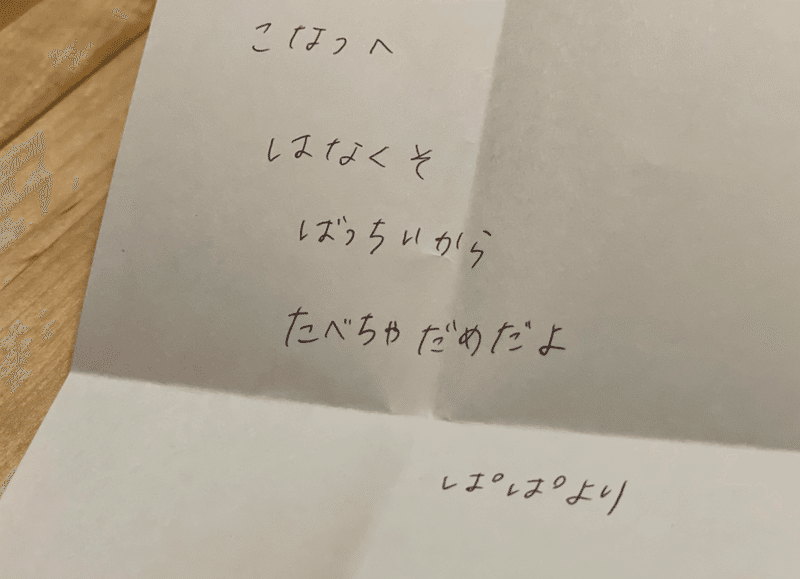 こなつへ
はなくそ
ばっちいから
たべちゃだめだよ
ぱぱより